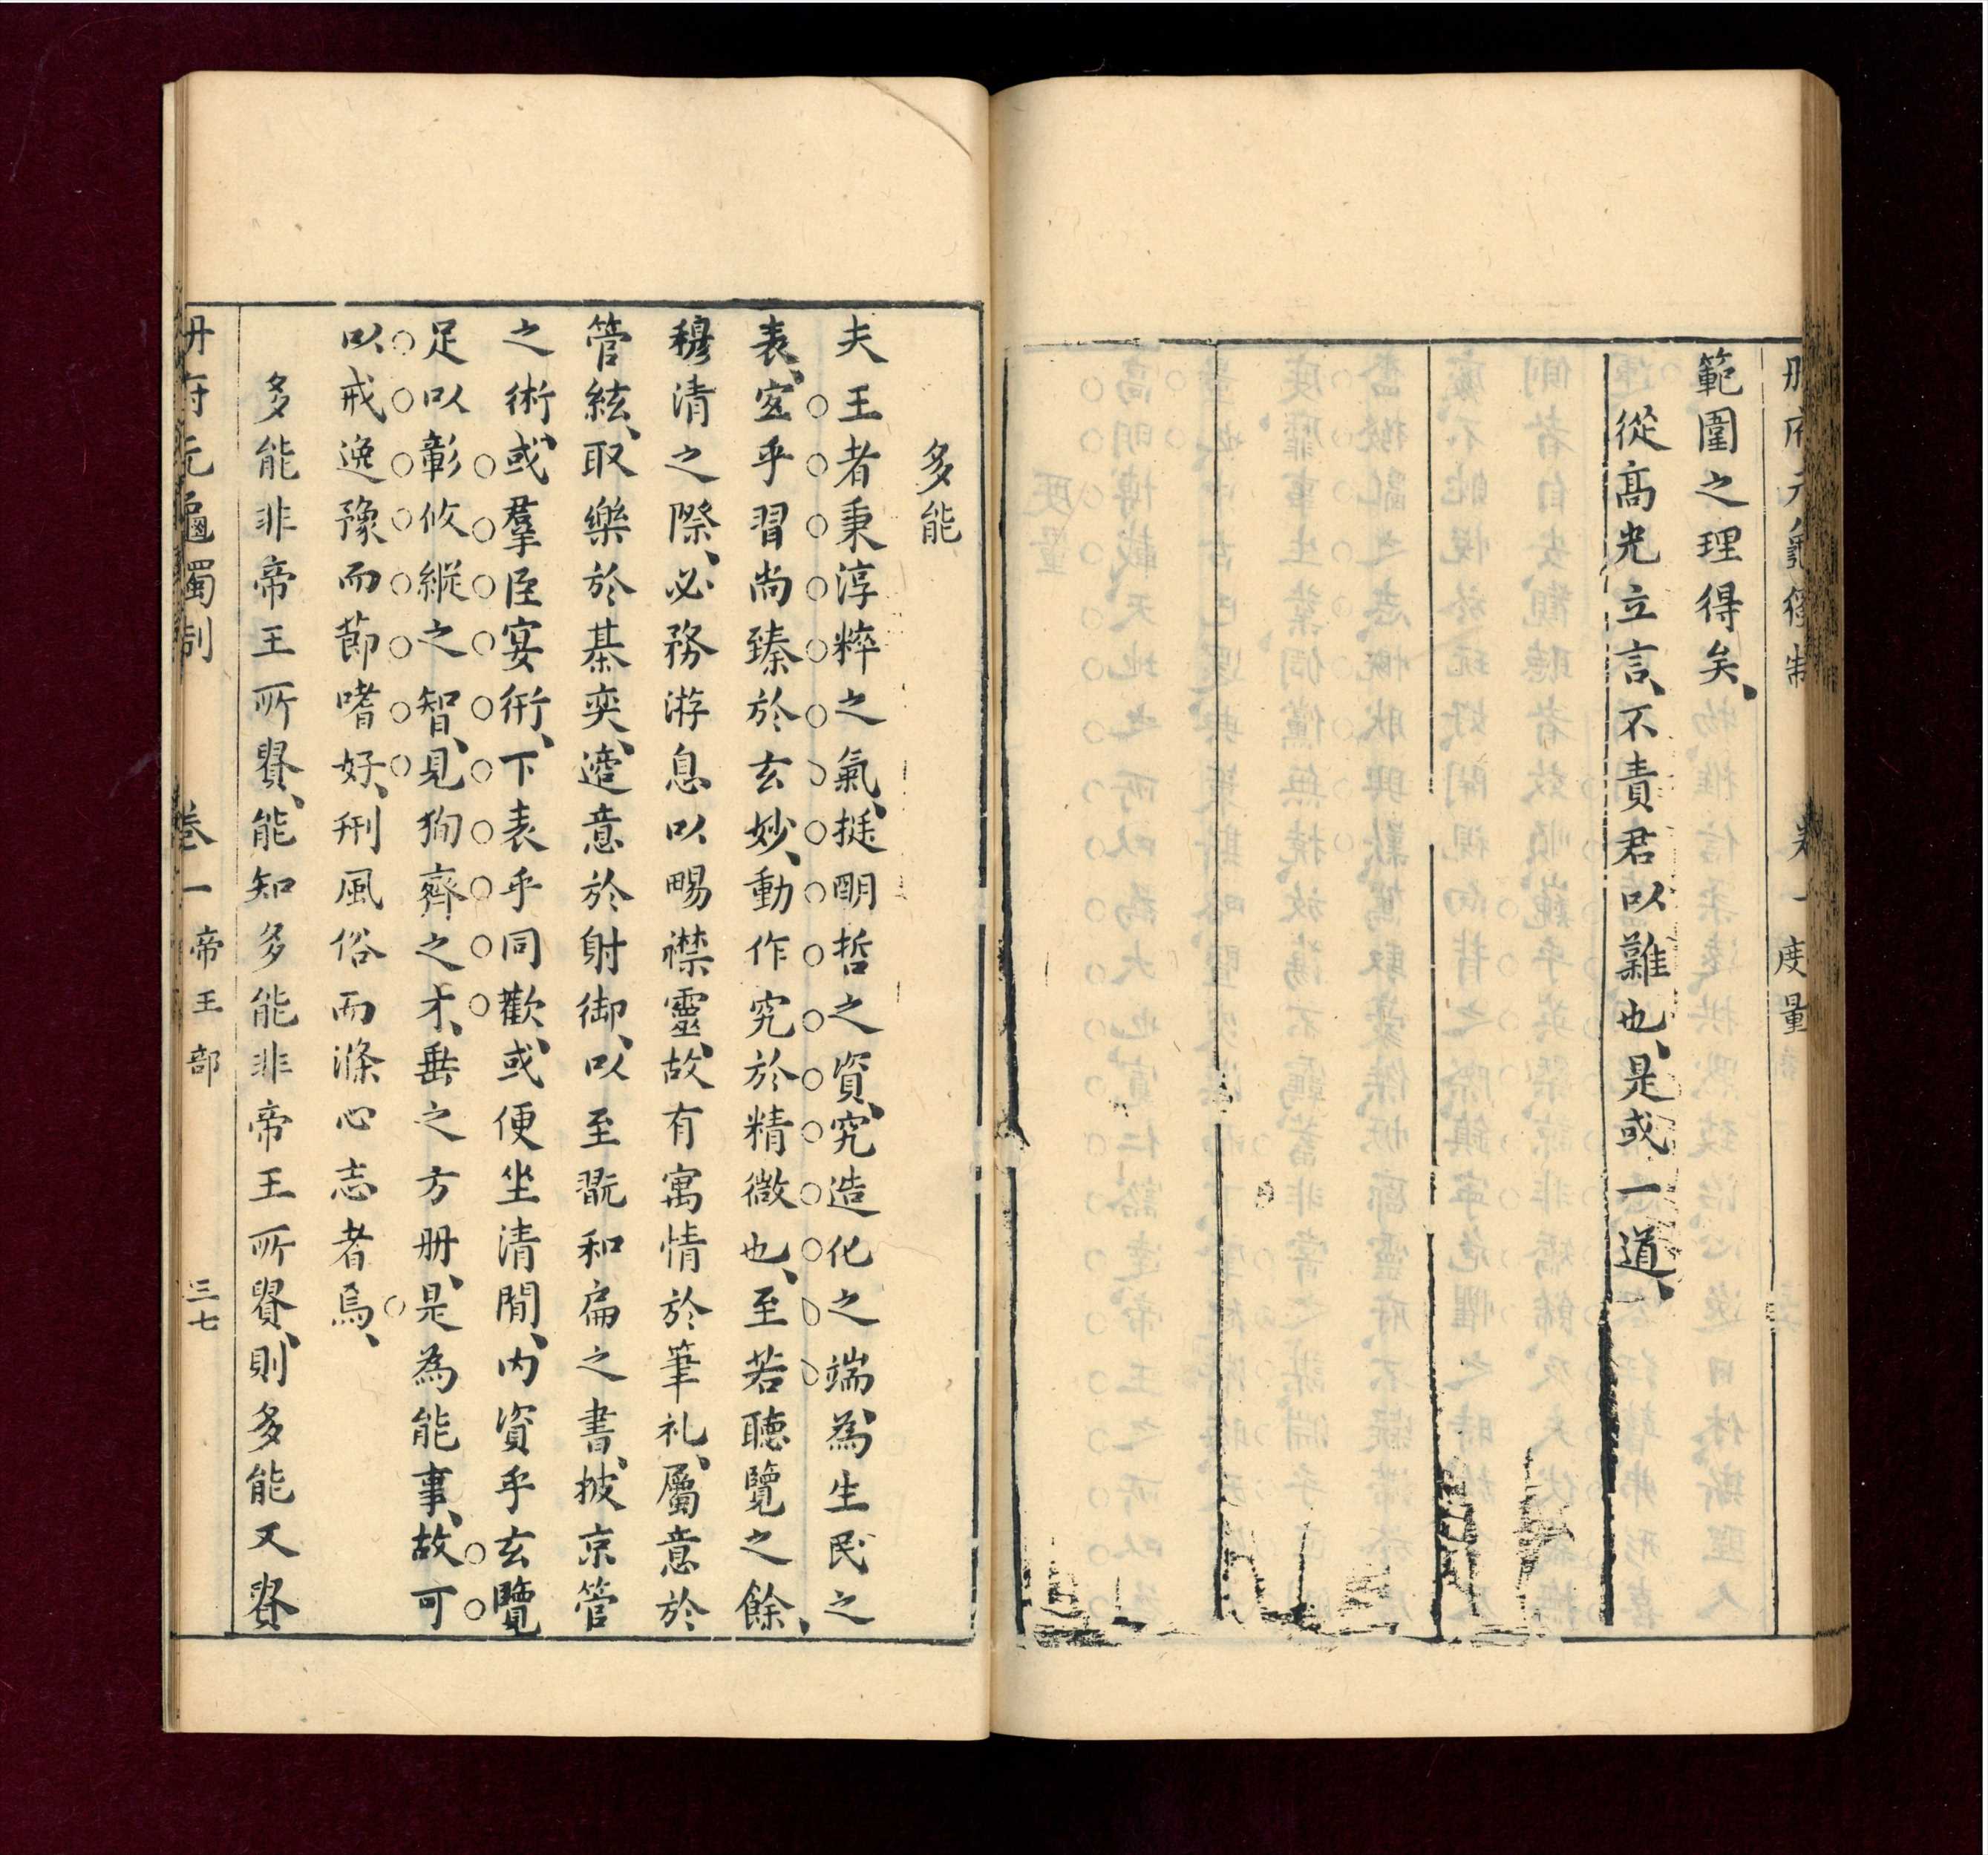 度量
範圍之理得矣、
從高光立言、不責君以難也、是或一道、
多能
夫王者秉淳粹之氣、挺明哲之資、究造化之端、為生民之
表、寔乎習尚臻於玄妙、動作究於精微也、至若聽覽之餘、
穆清之際、必務游息以暢襟靈、故有寓情於筆札、屬意於
管絃、取樂於棊奕、遊意於射御、以至翫和扁之書、披京管
之術、或羣臣宴衎、下表乎同歡、或便坐清閒、內資乎玄覽
足以彰攸縱之智、見徇齊之才、垂之方册、是為能事、故可
以戒逸豫而節嗜好、刑風俗而滌心志者焉、
多能非帝王所貴、能知多能非帝王所貴、則多能又貴
册府元龜獨制 卷一 帝王部 三七